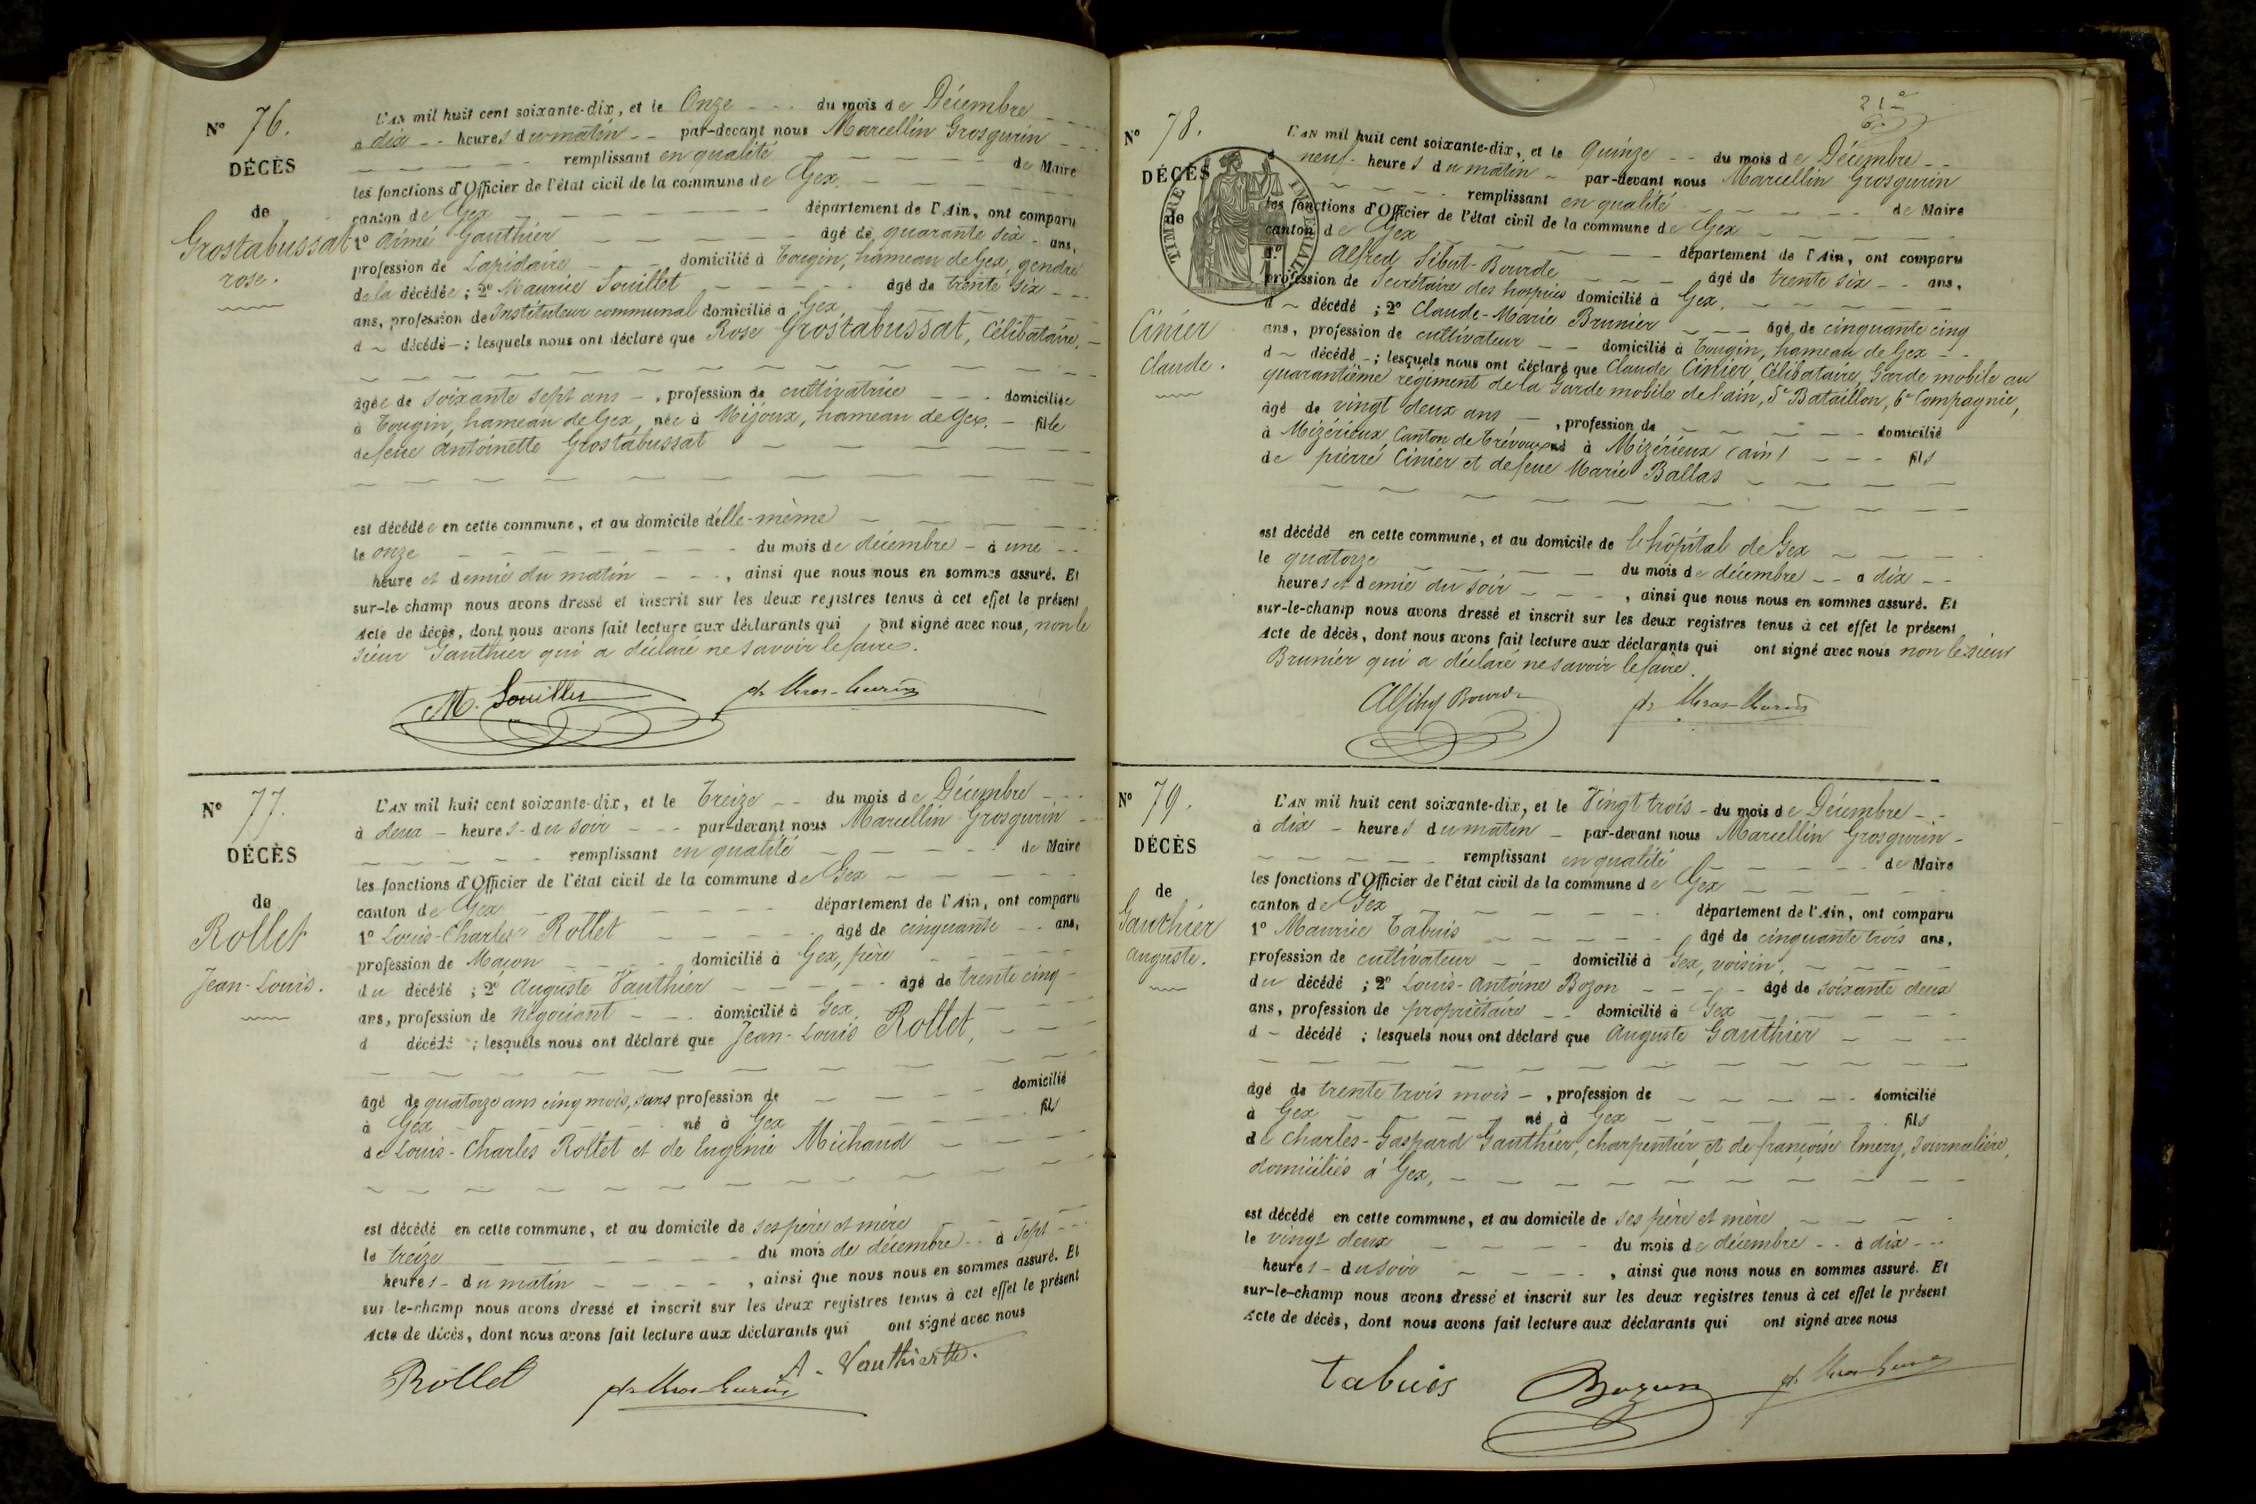 N° 76.
DÉCÈS
de
Grostabussat
rose.
L'AN mil huit cent soixante-dix, et le Onze du mois de Décembre
à dix heures du matin par-devant nous Marcellin Grosgurin
remplissant en qualité de Maire
les fonctions d'Officier de l'état civil de la commune de Gex
canton de Gex département de l'Ain, ont comparu
1° Aimé Gauthier âgé de quarante six ans,
profession de Lapidaire domicilié à Tougin, hameau de Gex, gendre
de la décédée ; 2° Maurice Souillet âgé de trente six
ans, profession de Instituteur communal domicilié à Gex
d décédé ; lesquels nous ont déclaré que Rose Grostabussat, Célibataire,
âgée de soixante sept ans , profession de cultivatrice domiciliée
à Tougin, hameau de Gex, née à Mijoux, hameau de Gex. fille
de feue Antoinette Grostabussat
est décédée en cette commune, et au domicile d'elle-même
le onze du mois de décembre à une
heure et demie du matin , ainsi que nous nous en sommes assuré. Et
sur-le-champ nous avons dressé et inscrit sur les deux registres tenus à cet effet le présent
Acte de décès, dont nous avons fait lecture aux déclarants qui ont signé avec nous, non le
sieur Gauthier qui a déclaré ne savoir le faire.
M. Souillet
N° 77.
DÉCÈS
de
Rollet
Jean-Louis.
L'AN mil huit cent soixante-dix, et le Treize du mois de Décembre
à deux heures du soir par-devant nous Marcellin Grosgurin
remplissant en qualité de Maire
les fonctions d'Officier de l'état civil de la commune de Gex
canton de Gex département de l'Ain, ont comparu
1° Louis-Charles Rollet âgé de cinquante ans,
profession de Maçon domicilié à Gex, père
du décédé ; 2° Auguste Vauthier âgé de trente cinq
ans, profession de négociant domicilié à Gex
d décédé ; lesquels nous ont déclaré que Jean-Louis Rollet,
âgé de quatorze ans cinq mois, sans profession de domicilié
à Gex né à Gex fils
de Louis-Charles Rollet et de Eugénie Michaud
est décédé en cette commune, et au domicile de ses père et mère
le treize du mois de décembre à sept
heures du matin , ainsi que nous nous en sommes assuré. Et
sur-le-champ nous avons dressé et inscrit sur les deux registres tenus à cet effet le présent
Acte de décès, dont nous avons fait lecture aux déclarants qui ont signé avec nous
Rollet A. Vauthier
21e
N° 78.
DÉCÈS
de
TIMBRE IMPÉRIAL
Cinier
Claude.
L'AN mil huit cent soixante-dix, et le quinze du mois de Décembre
à neuf heures du matin par-devant nous Marcellin Grosgurin
remplissant en qualité de Maire
les fonctions d'Officier de l'état civil de la commune de Gex
canton de Gex département de l'Ain, ont comparu
1° Alfred Sibut-Bourde âgé de trente six ans,
profession de Secrétaire des hospices domicilié à Gex,
d décédé ; 2° Claude-Marie Brunier âgé de cinquante cinq
ans, profession de cultivateur domicilié à Tougin, hameau de Gex
d décédé ; lesquels nous ont déclaré que Claude Cinier, Célibataire, Garde mobile au
quarantième régiment de la Garde mobile de l'ain, 5e Bataillon, 6e Compagnie,
âgé de vingt deux ans , profession de domicilié
à Mizérieux, Canton de Trévoux né à Mizérieux (ain) fils
de pierre Cinier et de feue Marie Ballas
est décédé en cette commune, et au domicile de l'hôpital de Gex
le quatorze du mois de décembre à dix
heures et demie du soir , ainsi que nous nous en sommes assuré. Et
sur-le-champ nous avons dressé et inscrit sur les deux registres tenus à cet effet le présent
Acte de décès, dont nous avons fait lecture aux déclarants qui ont signé avec nous non le sieur
Brunier qui a déclaré ne savoir le faire.
N° 79.
DÉCÈS
de
Gauthier
auguste.
L'AN mil huit cent soixante-dix, et le Vingt trois du mois de Décembre
à dix heures du matin par-devant nous Marcellin Grosgurin
remplissant en qualité de Maire
les fonctions d'Officier de l'état civil de la commune de Gex
canton de Gex département de l'Ain, ont comparu
1° Maurice Tabuis âgé de cinquante trois ans,
profession de cultivateur domicilié à Gex, voisin,
du décédé ; 2° Louis-Antoine Bozon âgé de soixante deux
ans, profession de propriétaire domicilié à Gex
d décédé ; lesquels nous ont déclaré que Auguste Gauthier
âgé de trente trois mois , profession de domicilié
à Gex né à Gex fils
de Charles-Gaspard Gauthier, charpentier, et de françoise Emery, Journalière,
domiciliés à Gex,
est décédé en cette commune, et au domicile de ses père et mère
le vingt deux du mois de décembre à dix
heures du soir , ainsi que nous nous en sommes assuré. Et
sur-le-champ nous avons dressé et inscrit sur les deux registres tenus à cet effet le présent
Acte de décès, dont nous avons fait lecture aux déclarants qui ont signé avec nous
tabuis Bozon